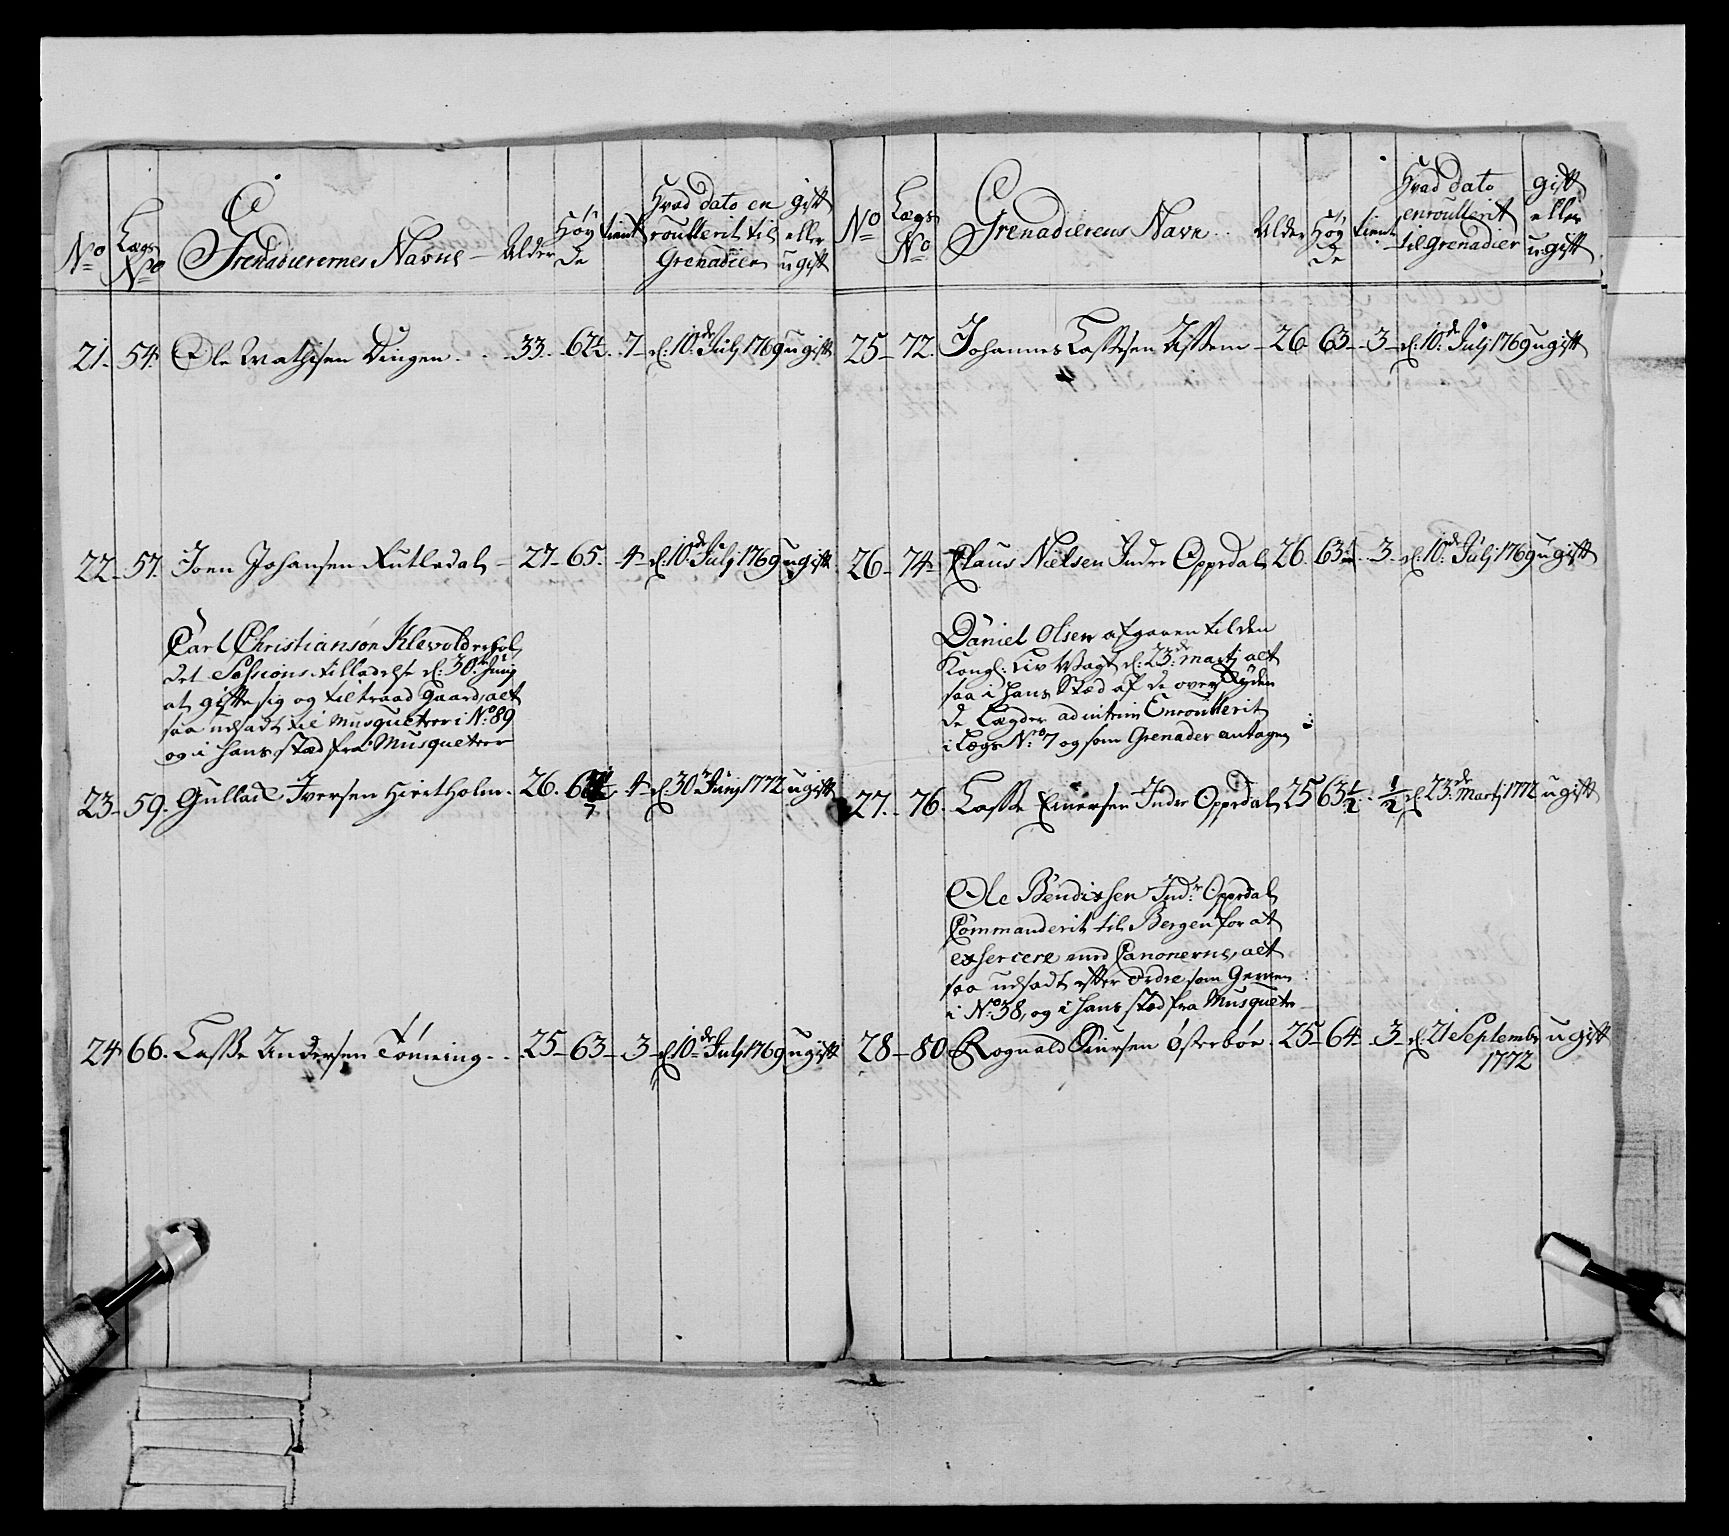 No
Lægs No
Grenadierernes Navne
Alder
Høyde
tient
Hvad dato en
roullerit til
Grenadeer
gift
eller
ugift
21. 54. Ole Mathisen Dingen. 33. 62½. 7 d: 10de Julj 1769 ugift
22. 57. Joen Johansen Rutledal 27. 65. 4 d: 10de Julj 1769 ugift
Carl Christiansøn Klevold erhol
det Sessions tilladelse d: 30te Junj
at gifte sig og tiltraad Gaard, alt
saa udsadt til Musqueteer i No 89
og i hans stæd fra Musqueteer
23. 59. Gullack Iversen Hiertholm. 26. 4 d: 30te Junj 1772 ugift
24 66. Lasse Andersen Tønning. 25 63 3 d: 10de Julj 1769 ugift
No
Lægs No
Grenadierens Navn
Alder
Høyde
tient
Hvad dato
enroullerit
til Grenadier
gift
eller
ugift
25 72. Johannes Lassesen 26 63 3 d: 10de Julj 1769 ugift
26 74 Claus Nielsen Indre Oppedal 26. 63½ 3 d: 10de Julj 1769 ugift
Daniel Olsen afgaaen til den
Kongl: Liv Vagt d: 23de Martj alt
saa i hans Stæd af de overskyden
de Lægder ad interim Enroullerit
i Lægs No 7 og som Grenader antagen
27. 76. Lasse Einersen Indre Oppedal 25 63½. ½ d: 23de Martj 1772 ugift
Ole Bendixsen Indr Oppedal
Commanderit til Bergen for at
exsercere med Canonerne, alt
saa udsadt efter ordre som Gemeen
i No 38, og i hans stæd fra Musqueteer
28 80 Rognald Einersen Østerbøe. 25 64 3 d: 21 Septembr ugift
1772